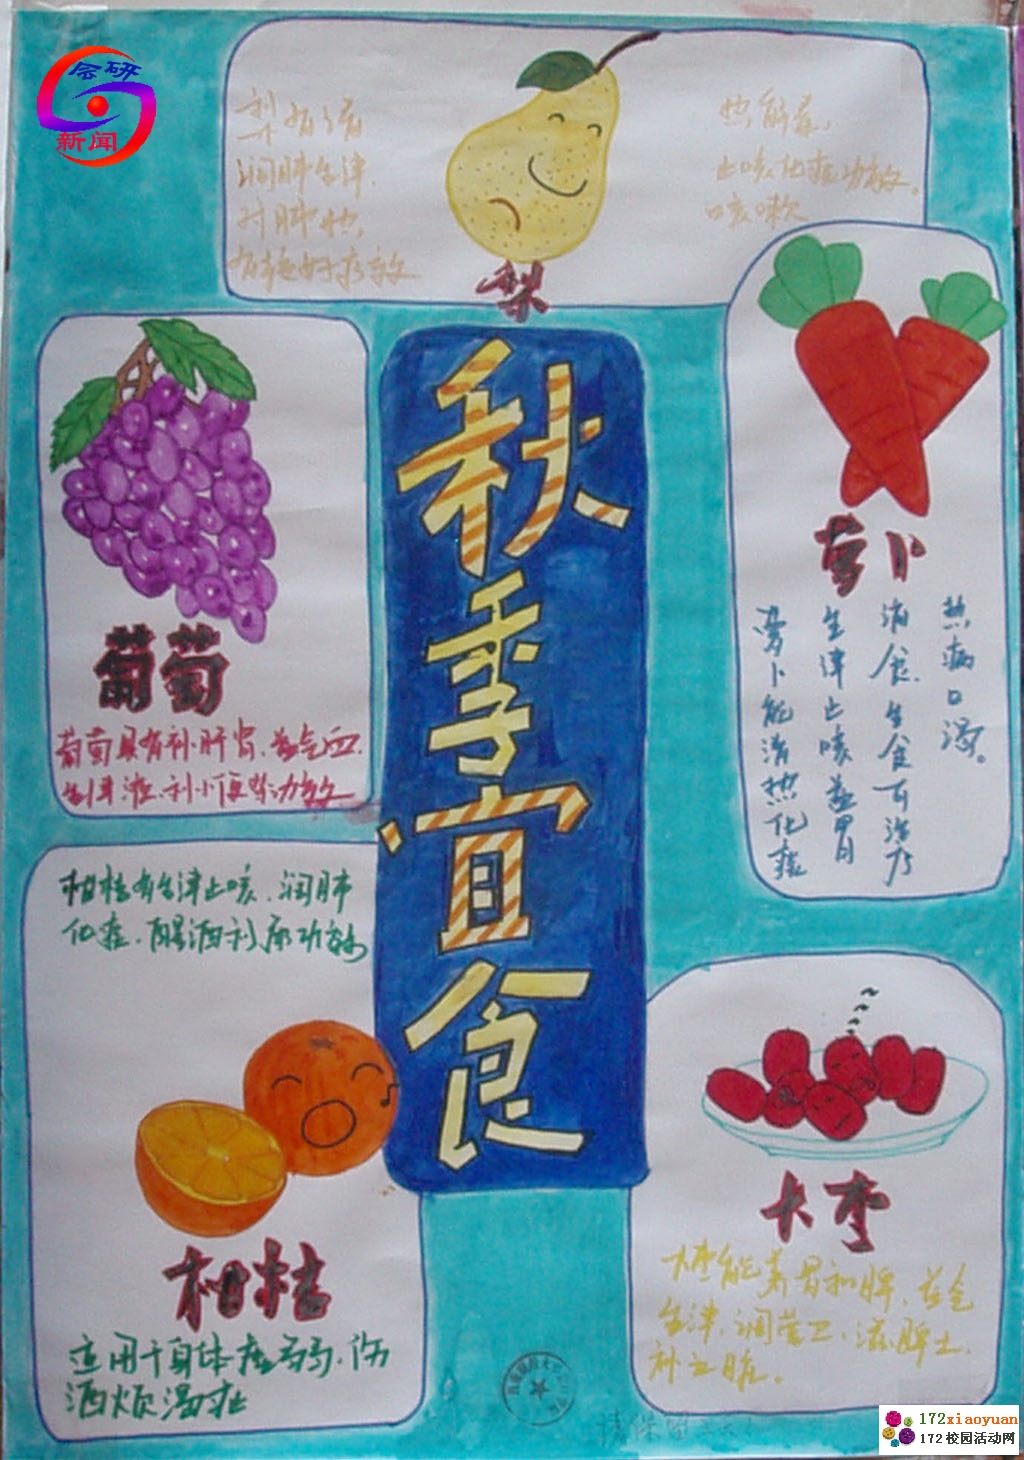 会研
新闻
润肺生津,
对肺热,
热解毒,
止咳化痰功效。
咳嗽
梨
秋季宜食
葡萄
葡萄具有补肝肾、益气血、
生津液、利小便等功效
萝卜
热病口渴。
消食、生食可治疗
生津止咳益胃
萝卜能清热化痰
柑桔有生津止咳、润肺
化痰、醒酒利尿功效
柑桔
应用于身体虚弱、伤
酒烦渴症
大枣
大枣能养胃和脾、益气
生津、调营卫、滋脾土、
172xiaoyuan
172校园活动网